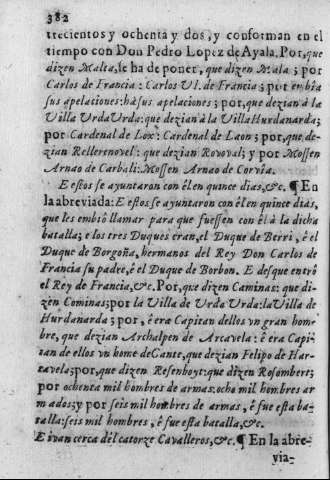 382
trecientos y ochenta y dos, y conforman en el
tiempo con Don Pedro Lopez de Ayala. Por, que
dizen Malta, se ha de poner, que dizen Mala; por
Carlos de Francia: Carlos VI. de Francia; por embia
sus apelaciones: hà sus apelaciones; por, que dezian à la
Villa VrdaVrda: que dezian à la Villa Hurdanarda;
por Cardenal de Lox: Cardenal de Laon; por, que de-
zian Rellerenovel: que dezian Rovoval; y por Mossen
Arnao de Carbali: Mossen Arnao de Corvia.
E estos se ayuntaron con él en quince dias, &c. ¶ En
la abreviada: E estos se ayuntaron con él en quince dias,
que les embió llamar para que fuessen con él à la dicha
batalla; e los tres Duques eran, el Duque de Berri, é el
Duque de Borgoña, hermanos del Rey Don Carlos de
Francia su padre, é el Duque de Borbon. E desque entró
el Rey de Francia, &c. Por, que dizen Caminas: que di-
zen Cominas; por la Villa de Vrda Vrda: la Villa de
Hurdanarda; por, é era Capitan dellos vn gran hom-
bre, que dezian Archalpen de Arcavela: é era Capi-
tan de ellos vn home de Gante, que dezian Felipo de Har-
tavela; por, que dizen Resenboyt: que dizen Rosombert;
por ochenta mil hombres de armas: ocho mil hombres ar
mados; y por seis mil hombres de armas, é fue esta ba-
talla: seis mil hombres, é fue esta batalla, &c.
E ivan cerca dèl catorze Cavalleros, &c. ¶ En la abre-
via-